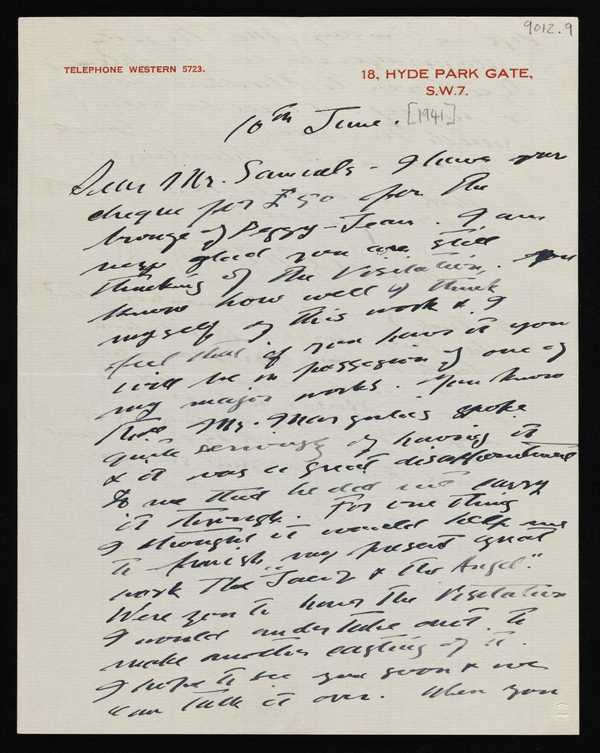 9012.9
TELEPHONE WESTERN 5723.
18, HYDE PARK GATE,
S.W.7.
10th June. [1941]
Dear Mr. Samuels - I have your
cheque for £50 for the
bronze of Peggy-Jean. I am
very glad you are still
thinking of the Visitation. You
know how well I think
myself of this work & I
feel that if you have it you
will be in possession of one of
my major works. You know
that Mr. Margulies spoke
quite seriously of having it
& it was a great disappointment
to me that he did not carry
it through. For one thing
I thought it would help me
to finish my present great
work "The Jacob & the Angel".
Were you to have the Visitation
I would undertake not to
make another casting of it.
I hope to see you soon & we
can talk it over. When you